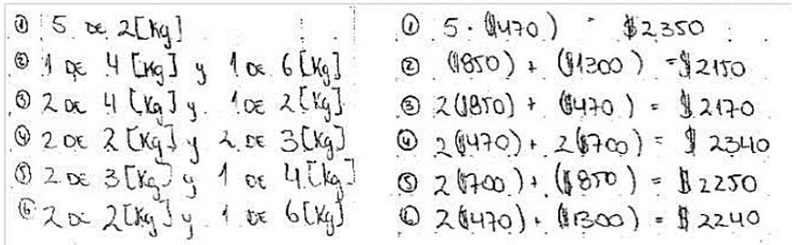 ① 5 de 2[Kg]
② 1 de 4[Kg] y 1 de 6[Kg]
③ 2 de 4[Kg] y 1 de 2[Kg]
④ 2 de 2[Kg] y 2 de 3[Kg]
⑤ 2 de 3[Kg] y 1 de 4[Kg]
⑥ 2 de 2[Kg] y 1 de 6[Kg]
① 5 · ($470) = $2350
② ($850) + ($1300) = $2150
③ 2($850) + ($470) = $2170
④ 2($470) + 2($700) = $2340
⑤ 2($700) + ($850) = $2250
⑥ 2($470) + ($1300) = $2240